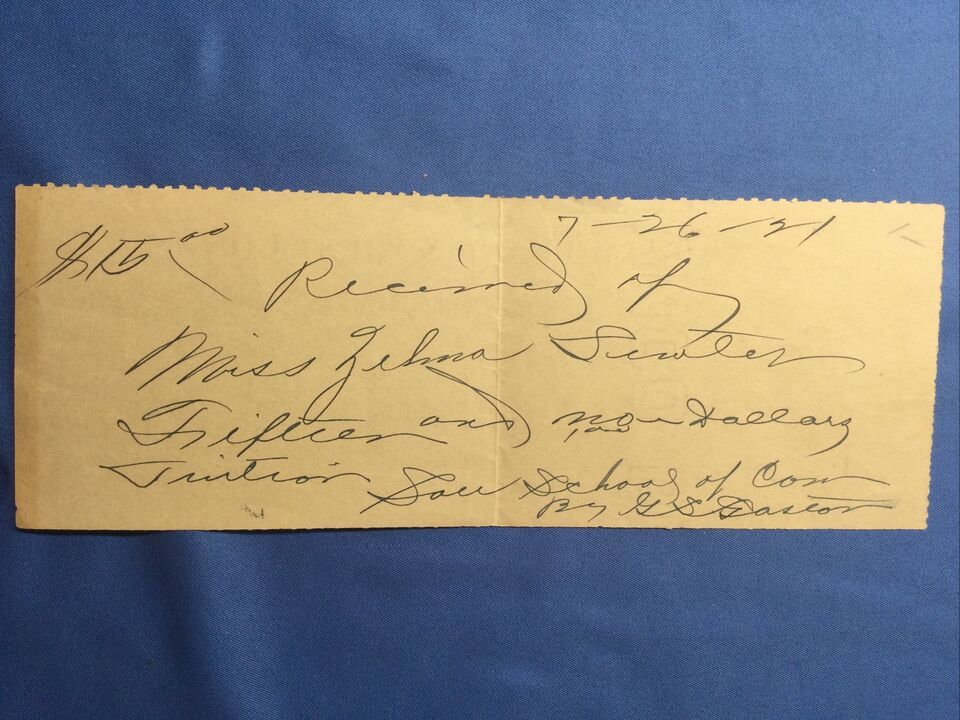 $15.00 7-26-21
Received of
Miss Zelma
Fifteen and no/100 Dollars
Tuition Sou School of Com
By G S Gaston